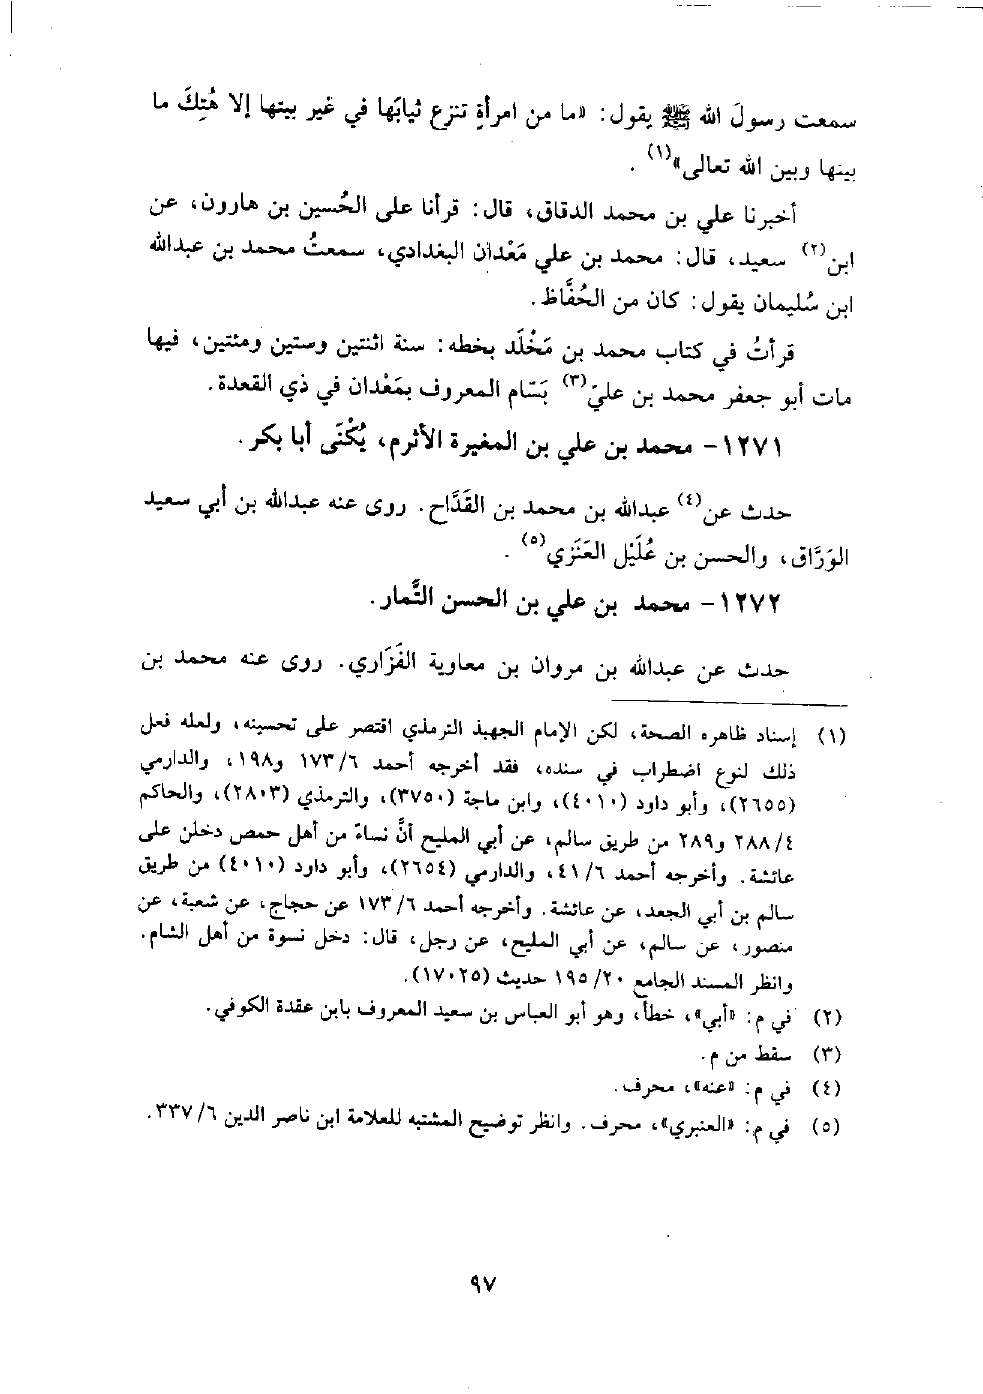 سمعت رسولَ الله ﷺ يقول: «ما من امرأةٍ تنزع ثيابَها في غير بيتها إلا هُتِكَ ما
بينها وبين الله تعالى»(١).
أخبرنا علي بن محمد الدقاق، قال: قرأنا على الحُسين بن هارون، عن
ابن(٢) سعيد، قال: محمد بن علي مَعْدان البغدادي، سمعتُ محمد بن عبدالله
ابن سُليمان يقول: كان من الحُفَّاظ.
قرأتُ في كتاب محمد بن مَخْلَد بخطه: سنة اثنتين وستين ومئتين، فيها
مات أبو جعفر محمد بن عليّ(٣) بَسَّام المعروف بمَعْدان في ذي القعدة.
١٢٧١- محمد بن علي بن المغيرة الأثرم، يُكْنَى أبا بكر.
حدث عن(٤) عبدالله بن محمد بن القَدَّاح. روى عنه عبدالله بن أبي سعيد
الوَرَّاق، والحسن بن عُلَيْل العَنَزي(٥).
١٢٧٢- محمد بن علي بن الحسن التَّمار.
حدث عن عبدالله بن مروان بن معاوية الفَزَاري. روى عنه محمد بن
(١) إسناد ظاهره الصحة، لكن الإمام الجهبذ الترمذي اقتصر على تحسينه، ولعله فعل
ذلك لنوع اضطراب في سنده، فقد أخرجه أحمد ٦/ ١٧٣ و١٩٨، والدارمي
(٢٦٥٥)، وأبو داود (٤٠١٠)، وابن ماجة (٣٧٥٠)، والترمذي (٢٨٠٣)، والحاكم
٤/ ٢٨٨ و٢٨٩ من طريق سالم، عن أبي المليح أنَّ نساءً من أهل حمص دخلن على
عائشة. وأخرجه أحمد ٦/ ٤١، والدارمي (٢٦٥٤)، وأبو داود (٤٠١٠) من طريق
سالم بن أبي الجعد، عن عائشة. وأخرجه أحمد ٦/ ١٧٣ عن حجاج، عن شعبة، عن
منصور، عن سالم، عن أبي المليح، عن رجل، قال: دخل نسوة من أهل الشام.
وانظر المسند الجامع ٢٠/ ١٩٥ حديث (١٧٠٢٥).
(٢) في م: «أبي»، خطأ، وهو أبو العباس بن سعيد المعروف بابن عقدة الكوفي.
(٣) سقط من م.
(٤) في م: «عنه»، محرف.
(٥) في م: «العنبري»، محرف. وانظر توضيح المشتبه للعلامة ابن ناصر الدين ٦/ ٣٣٧.
٩٧